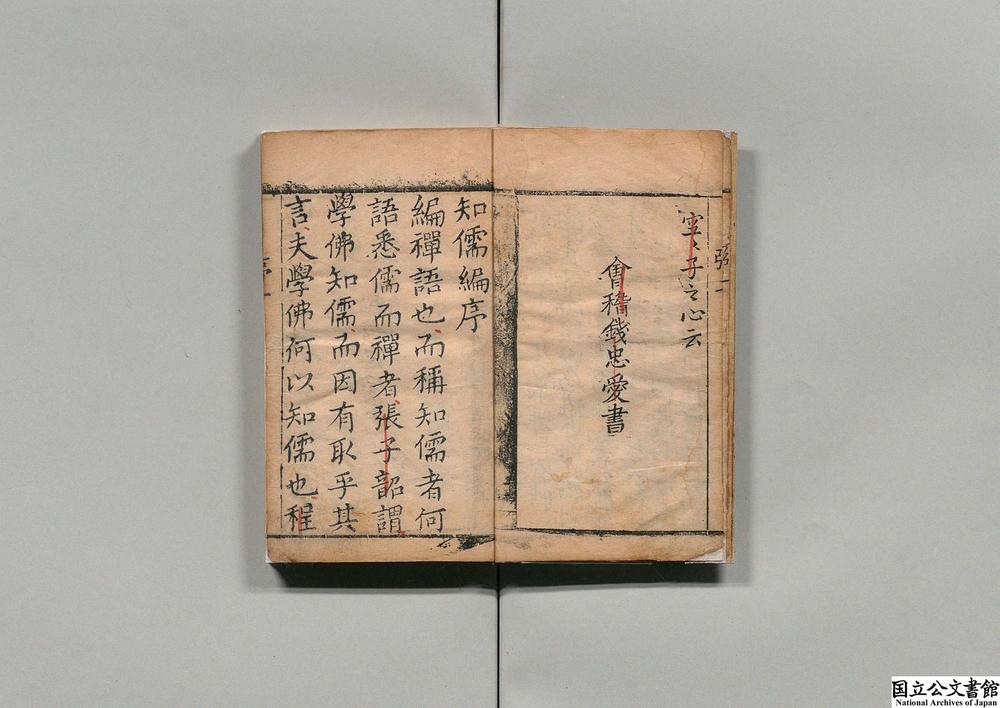 空〻子之心云
會稽錢忠愛書
知儒編序
編禪語也而稱知儒者何
語悉儒而禪者張子韶謂
學佛知儒而因有取乎其
言夫學佛何以知儒也程
国立公文書館
National Archives of Japan